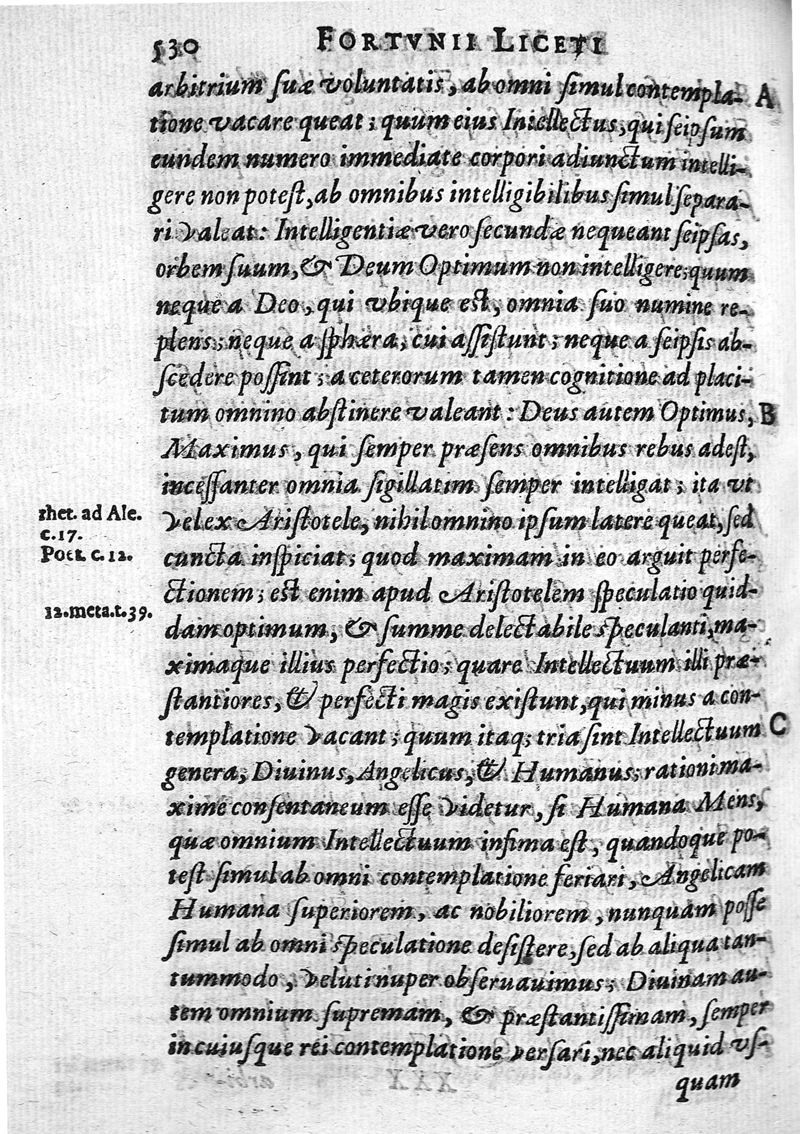 530 FORTVNII LICETI
arbitrium suæ voluntatis, ab omni simul contempla- A
tione vacare queat; quum eius Intellectus, qui seipsum
eundem numero immediate corpori adiunctum intelli-
gere non potest, ab omnibus intelligibilibus simul separa-
ri valeat: Intelligentiæ vero secundæ nequeant seipsas,
orbem suum, & Deum Optimum non intelligere; quum
neque a Deo, qui vbique est, omnia suo numine re-
plens; neque a sphæra, cui assistunt; neque a seipsis ab-
scedere possint; a ceterorum tamen cognitione ad placi-
tum omnino abstinere valeant: Deus autem Optimus, B
Maximus, qui semper præsens omnibus rebus adest,
incessanter omnia sigillatim semper intelligat; ita vt
rhet. ad Ale. vel ex Aristotele, nihil omnino ipsum latere queat, sed
c.17.
Poet. c. 12. cuncta inspiciat; quod maximam in eo arguit perfe-
ctionem; est enim apud Aristotelem speculatio quid-
12.meta.t.39. dam optimum, & summe delectabile speculanti, ma-
ximaque illius perfectio; quare Intellectuum illi præ-
stantiores, & perfecti magis existunt, qui minus a con-
templatione vacant; quum itaq; tria sint Intellectuum C
genera, Diuinus, Angelicus, & Humanus; rationi ma-
xime consentaneum esse videtur, si Humana Mens,
quæ omnium Intellectuum infima est, quandoque po-
test simul ab omni contemplatione feriari, Angelicam
Humana superiorem, ac nobiliorem, nunquam posse
simul ab omni speculatione desistere, sed ab aliqua tan-
tummodo, veluti nuper obseruauimus; Diuinam au-
tem omnium supremam, & præstantissimam, semper
in cuiusque rei contemplatione versari, nec aliquid vs-
quam